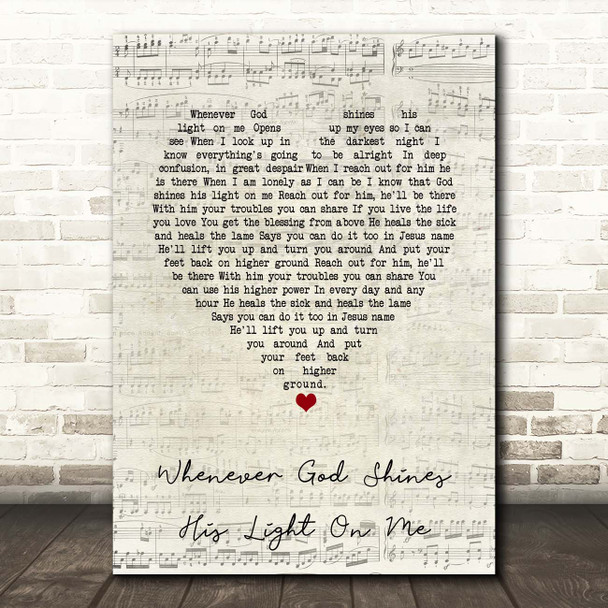 Whenever God shines his
light on me Opens up my eyes so I can
see When I look up in the darkest night I
know everything's going to be alright In deep
confusion, in great despair When I reach out for him he
is there When I am lonely as I can be I know that God
shines his light on me Reach out for him, he'll be there
With him your troubles you can share If you live the life
you love You get the blessing from above He heals the sick
and heals the lame Says you can do it too in Jesus name
He'll lift you up and turn you around And put your
feet back on higher ground Reach out for him, he'll
be there With him your troubles you can share You
can use his higher power In every day and any
hour He heals the sick and heals the lame
Says you can do it too in Jesus name
He'll lift you up and turn
you around And put
your feet back
on higher
ground.
Whenever God Shines
His Light On Me